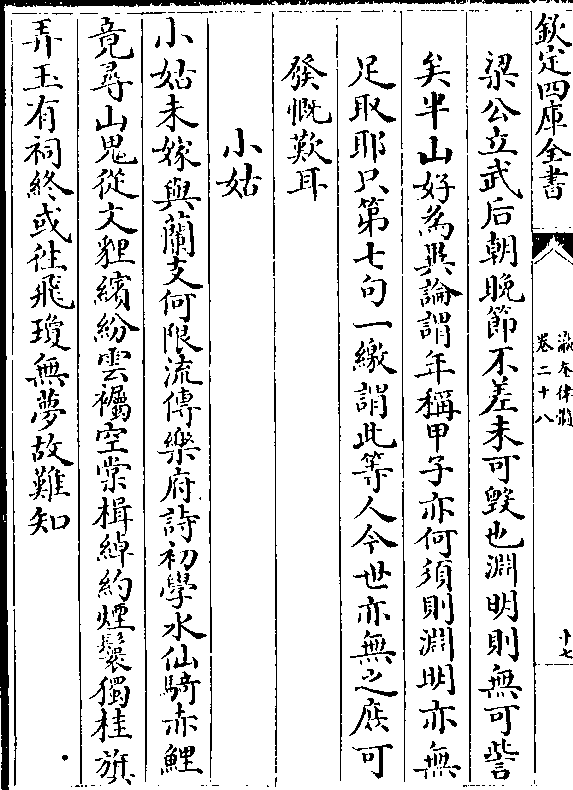 欽定四庫全書
瀛奎律髓
卷二十八
十七
梁公立武后朝晩節不差未可毀也淵明則無可訾
矣半山好為異論謂年稱甲子亦何須則淵明亦無
足取耶只第七句一繳謂此等人今世亦無之庶可
發慨歎耳
小姑
小姑未嫁與蘭支何限流傳樂府詩初學水仙騎赤鯉
竟尋山鬼從文貍繽紛雲襡空棠楫綽約煙鬟獨桂旗
弄玉有祠終或往飛瓊無夢故難知